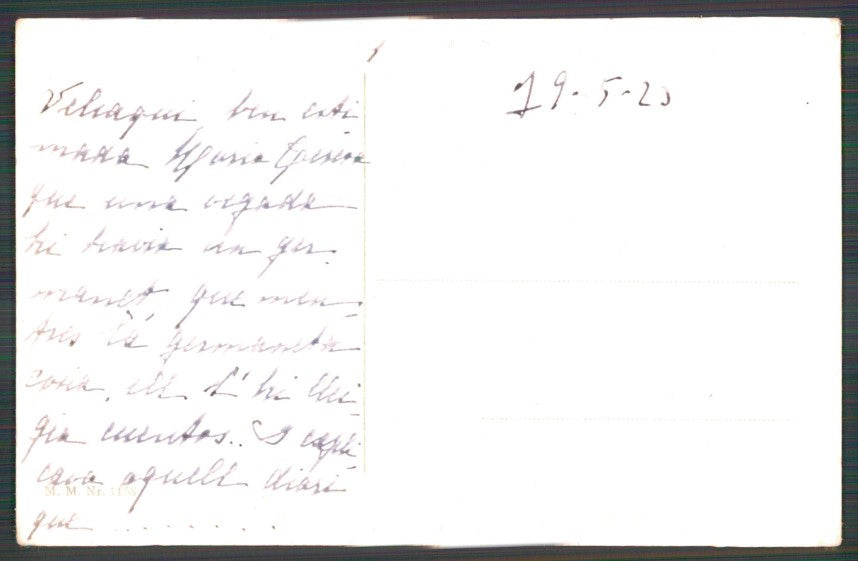 19-5-23
Vehaqui, ben esti
mada Maria Teresa
que una vegada
hi havia un ger-
manet, que men-
tres la germaneta
cosia, ell l'hi lle-
gia cuentos.. I expli
cava aquell diari
que ........
M. M. Nr.